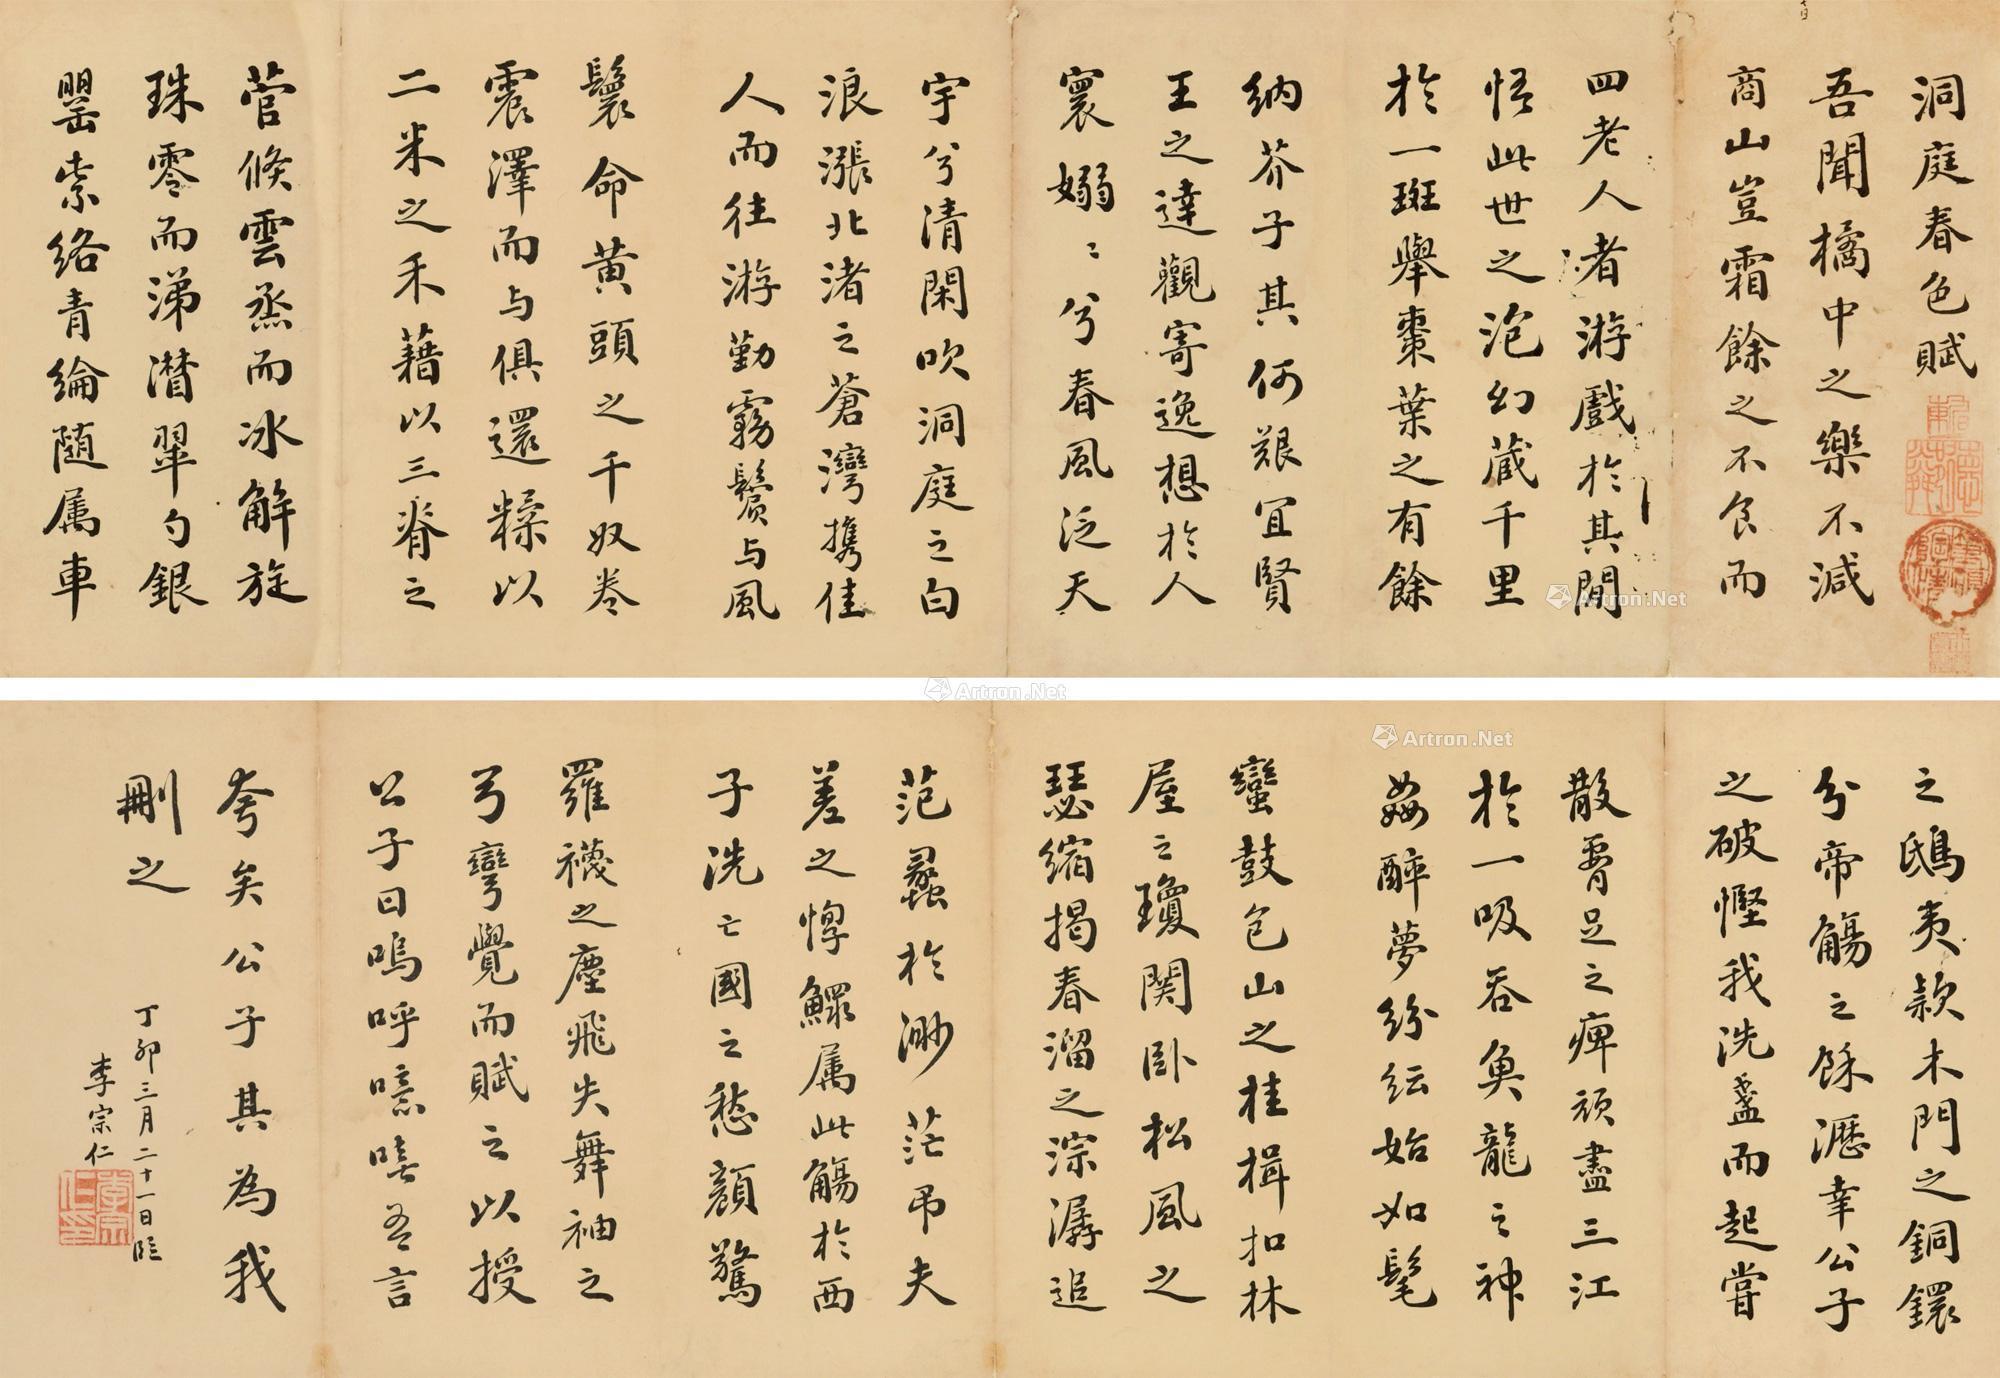 洞庭春色賦
吾聞橘中之樂不減
商山豈霜餘之不食而
四老人者游戲於其間
悟此世之泡幻藏千里
於一斑舉棗葉之有餘
納芥子其何艱宜賢
王之達觀寄逸想於人
寰嫋〻兮春風泛天
宇兮清閑吹洞庭之白
浪漲北渚之蒼灣攜佳
人而往游勤霧鬢与風
鬟命黄頭之千奴卷
震澤而与俱還糅以
二米之禾藉以三脊之
菅倏雲烝而冰解旋
珠零而涕潸翠勺銀
罌紫絡青綸随属車
之鴟夷款木門之銅鐶
分帝觴之餘瀝幸公子
之破慳我洗盞而起嘗
散腰足之痺頑盡三江
於一吸吞魚龍之神
姦醉夢紛紜始如髦
蠻鼓包山之桂楫扣林
屋之瓊関卧松風之
瑟縮揭春溜之淙潺追
范蠡於渺茫弔夫
差之惸鰥属此觴於西
子洗亡國之愁顏驚
羅襪之塵飛失舞袖之
弓彎覺而賦之以授
公子曰嗚呼噫嘻吾言
夸矣公子其為我
刪之
丁卯三月二十一日臨
李宗仁
李宗仁印
Artron.Net
Artron.Net
Artron.Net